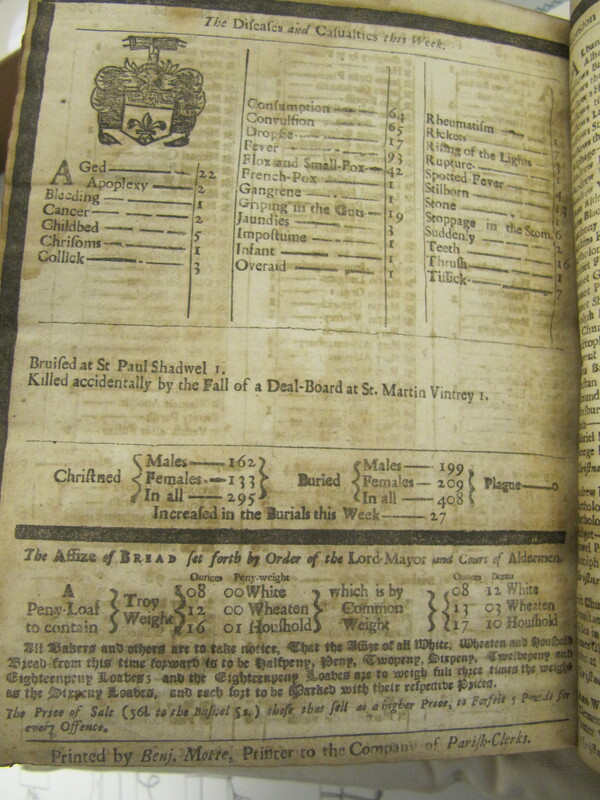 The Diseases and Casualties this Week.
Aged 22
Apoplexy 2
Bleeding 1
Cancer 2
Childbed 5
Chrisoms 1
Collick 3
Consumption 64
Convulsion 65
Dropsie 17
Fever 93
Flox and Small-Pox 42
French-Pox 1
Gangrene 1
Griping in the Guts 19
Jaundies 3
Impostume 1
Infant 1
Overaid 1
Rheumatism
Rickets
Rising of the Lights
Rupture
Spotted Fever
Stilborn
Stone
Stoppage in the Stom. 6
Suddenly
Teeth 16
Thrush
Tissick 7
Bruised at St Paul Shadwel 1.
Killed accidentally by the Fall of a Deal-Board at St. Martin Vintrey 1.
Christned Males 162 Females 133 In all 295 Buried Males 199 Females 209 In all 408 Plague 0
Increased in the Burials this Week 27
The Assize of BREAD set forth by Order of the Lord-Mayor and Court of Aldermen.
Ounces Peny-weight Ounces
A 08 00 White which is by 08 12 White
Peny-Loaf Troy 12 00 Wheaten Common 13 03 Wheaten
to contain Weight 16 01 Houshold Weight 17 10 Houshold
All Bakers and others are to take notice, That the Assize of all White, Wheaten and Houshold
Bread from this time forward is to be Halfpeny, Peny, Twopeny, Sixpeny, Twelvepeny and
Eighteenpeny Loaves: and the Eighteenpeny Loaves are to weigh full three times the weight
as the Sixpeny Loaves, and each sort to be Marked with their respective Prices.
The Price of Salt (56l. to the Bushel 5s.) those that sell at a higher Price, to Forfeit 5 Pounds for
every Offence.
Printed by Benj. Motte, Printer to the Company of Parish-Clerks.